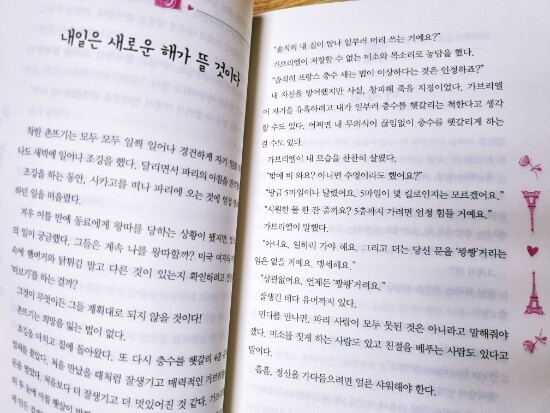 내일은 새로운 해가 뜰 것이다
착한 촌뜨기는 모두 모두 일찍 일어나 경건하게 자기 일을
나도 새벽에 일어나 조깅을 했다. 달리면서 파리의 아침을
조깅을 하는 동안, 시카고를 떠나 파리에 오는 것에
하던 일을 떠올렸다.
겨우 이틀 만에 동료에게 왕따를 당하는 상황이 됐지만,
의 일이 궁금했다. 그들은 계속 나를 왕따할까? 미국 여자
에 햄버거와 닭튀김 말고 다른 것이 있는지 확인하려고
'떠보기'를 하는 걸까?
그것이 무엇이든 그들 계획대로 되지 않을 것이다!
촌뜨기는 희망을 잃는 법이 없다.
조깅을 마치고 집에 돌아왔다. 또 다시 층수를 헷갈려 4층
멈춰를 꽂았다. 처음 만났을 때처럼 잘생기고 매력적인
문을 열었다. 처음보다 더 잘생기고 더 멋있어진 것 같다.
"솔직히 내 집이 탐나 일부러 머리 쓰는 거예요?"
가브리엘이 저항할 수 없는 미소와 목소리로 농담을 했다.
"솔직히 프랑스 층수 세는 법이 이상하다는 것은 인정하죠?"
내 자신을 방어했지만 사실, 창피해 죽을 지경이었다. 가브리엘
이 자기를 유혹하려고 내가 일부러 층수를 헷갈리는 척한다고 생각
할 수도 있다. 어쩌면 내 무의식이 끊임없이 층수를 헷갈리게 하는
걸 수도 있다.
가브리엘이 내 모습을 찬찬히 살폈다.
"밖에 비 와요? 아니면 수영이라도 했어요?"
"방금 5마일이나 달렸어요. 5마일이 몇 킬로인지는 모르겠어요."
"시원한 물 한 잔 줄까요? 5층까지 가려면 엄청 힘들 거예요."
가브리엘이 말했다.
"아니요, 일하러 가야 해요. 그리고 더는 당신 문을 '쾅쾅'거리는
일은 없을 거예요. 맹세해요."
"상관없어요. 언제든 '쾅쾅'거려요."
잘생긴 데다 유머까지 있다.
민디를 만나면, 파리 사람이 모두 못된 것은 아니라고 말해줘야
겠다. 미소를 짓게 하는 사람도 있고 친절을 베푸는 사람도 있다고
말이다.
흠흠, 정신을 가다듬으려면 얼른 샤워해야 한다.